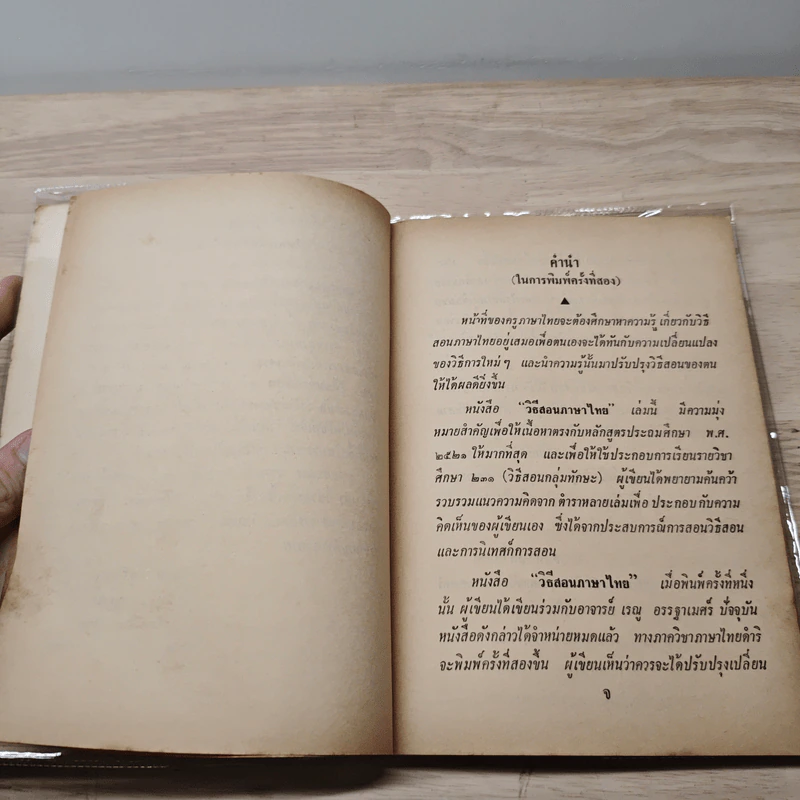 คำนำ
(ในการพิมพ์ครั้งที่สอง)
หน้าที่ของครูภาษาไทยจะต้องศึกษาหาความรู้ เกี่ยวกับวิธี
สอนภาษาไทยอยู่เสมอเพื่อตนเองจะได้ทันกับความเปลี่ยนแปลง
ของวิธีการใหม่ ๆ และนำความรู้นั้นมาปรับปรุงวิธีสอนของตน
ให้ได้ผลดียิ่งขึ้น
หนังสือ “วิธีสอนภาษาไทย” เล่มนี้ มีความมุ่ง
หมายสำคัญเพื่อให้เนื้อหาตรงกับหลักสูตรประถมศึกษา พ.ศ.
๒๕๒๑ ให้มากที่สุด และเพื่อให้ใช้ประกอบการเรียนรายวิชา
ศึกษา ๒๓๑ (วิธีสอนกลุ่มทักษะ) ผู้เขียนได้พยายามค้นคว้า
รวบรวมแนวความคิดจาก ตำราหลายเล่มเพื่อ ประกอบ กับความ
คิดเห็นของผู้เขียนเอง ซึ่งได้จากประสบการณ์การสอนวิธีสอน
และการนิเทศก์การสอน
หนังสือ “วิธีสอนภาษาไทย” เมื่อพิมพ์ครั้งที่หนึ่ง
นั้น ผู้เขียนได้เขียนร่วมกับอาจารย์ เรณู อรรฐาเมศร์ ปัจจุบัน
หนังสือดังกล่าวได้จำหน่ายหมดแล้ว ทางภาควิชาภาษาไทยดำริ
จะพิมพ์ครั้งที่สองขึ้น ผู้เขียนเห็นว่าควรจะได้ปรับปรุงเปลี่ยน
จ